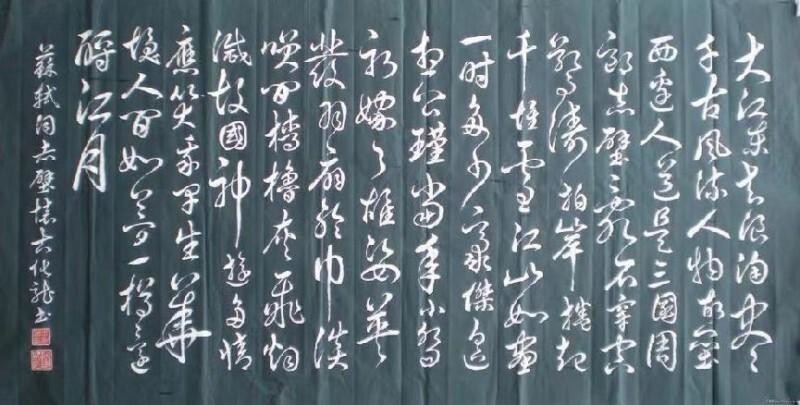 大江東去浪淘盡
千古風流人物故壘
西邊人道是三國周
郎赤壁亂石穿空
驚濤拍岸捲起
千堆雪江山如畫
一時多少豪傑遙
想公瑾當年小喬
初嫁了雄姿英
發羽扇綸巾談
笑間檣櫓灰飛烟
滅故國神遊多情
應笑我早生華
髮人間如夢一樽還
酹江月
蘇軾詞赤壁懷古化龍書